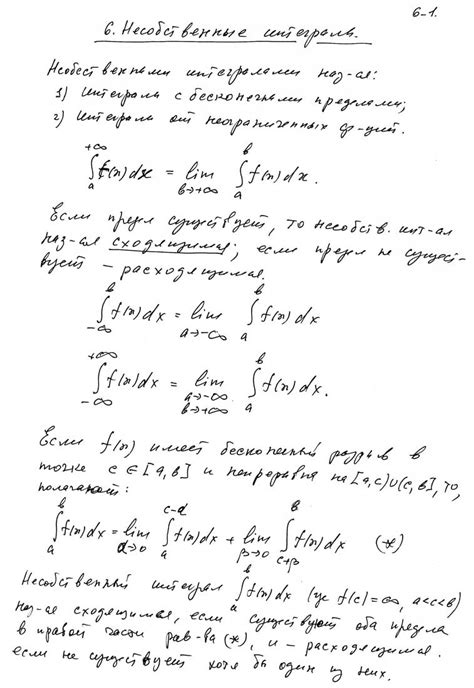 6-1.
6. Несобственные интегралы.
Несобственными интегралами наз-ся:
1) интегралы с бесконечными пределами;
2) интегралы от неограниченных ф-ций.
∫_a^{+∞} f(x)dx = lim_{b→+∞} ∫_a^b f(x)dx.
Если предел существует, то несобств. инт-ал
наз-ся сходящимся; если предел не сущест-
вует – расходящимся.
∫_{-∞}^b f(x)dx = lim_{a→-∞} ∫_a^b f(x)dx
∫_{-∞}^{+∞} f(x)dx = lim_{a→-∞ b→+∞} ∫_a^b f(x)dx.
Если f(x) имеет бесконечный разрыв в
точке c∈[a,b] и непрерывна на [a,c)∪(c,b], то,
полагают:
∫_a^b f(x)dx = lim_{α→0} ∫_a^{c-α} f(x)dx + lim_{β→0} ∫_{c+β}^b f(x)dx (*)
Несобственный интеграл ∫_a^b f(x)dx (где f(c)=∞, a<c<b)
наз-ся сходящимся, если существуют оба предела
в правой части рав-ва (*), и – расходящимся.
если не существует хотя бы один из них.